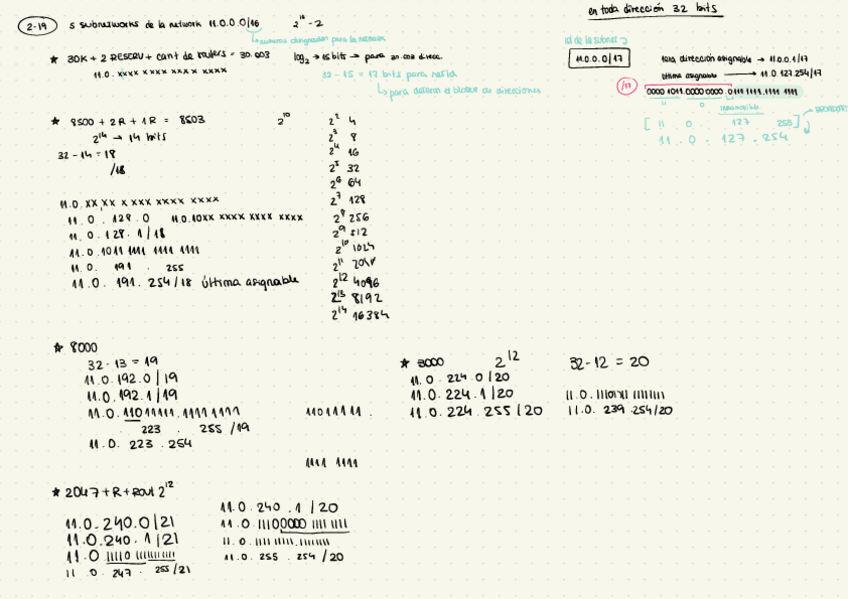 2-19 5 subnetworks de la network 11.0.0.0/16 2^16 - 2
numeros designados para la network
★ 30K + 2 RESERV + cant de routers = 30.003 log₂ → 15 bits → para 30.003 direcc.
11.0. xxxx xxxx xxxx xxxx
32 - 15 = 17 bits para netid
para determ el bloque de direcciones
en toda dirección 32 bits
id de la subnet
11.0.0.0/17
1era dirección asignable → 11.0.0.1/17
última asignable → 11.0.127.254/17
/17
0000 1011.0000 0000.0111 1111.1111 1111
11 0
[ 11 . 0 . 127 255 ]
BROADCAST
11 . 0 . 127 . 254
★ 8500 + 2R + 1R = 8503 2^10
2^14 → 14 bits
32 - 14 = 18
/18
11.0. xx xx x xxx xxxx xxxx
11 . 0 . 128 . 0 11.0.10xx xxxx xxxx xxxx
11 . 0 . 128 . 1 / 18
11.0.1011 1111 1111 1111
11.0. 191 . 255
11.0. 191. 254/18 última asignable
2^2 4
2^3 8
2^4 16
2^5 32
2^6 64
2^7 128
2^8 256
2^9 512
2^10 1024
2^11 2048
2^12 4096
2^13 8192
2^14 16384
★ 8000
32 - 13 = 19
11.0.192.0 / 19
11.0.192.1 / 19
11.0.11011111.1111 1111
. 223 . 255 /19
11.0. 223 . 254
11011111 .
1111 1111
★ 3000 2^12 32-12 = 20
11.0. 224.0/20
11.0. 224.1 /20
11.0. 224.255 / 20
11.0. 239 .254/20
★ 2047 + R + Rout 2^12
11.0.240.0/21
11.0.240.1/21
11.0 11110 11111111111
11 . 0 . 247 . 255/21
11.0.240 .1 / 20
11.0.11100000 1111 1111
11.0.1111 1111.11111111
11.0. 255 . 254 / 20